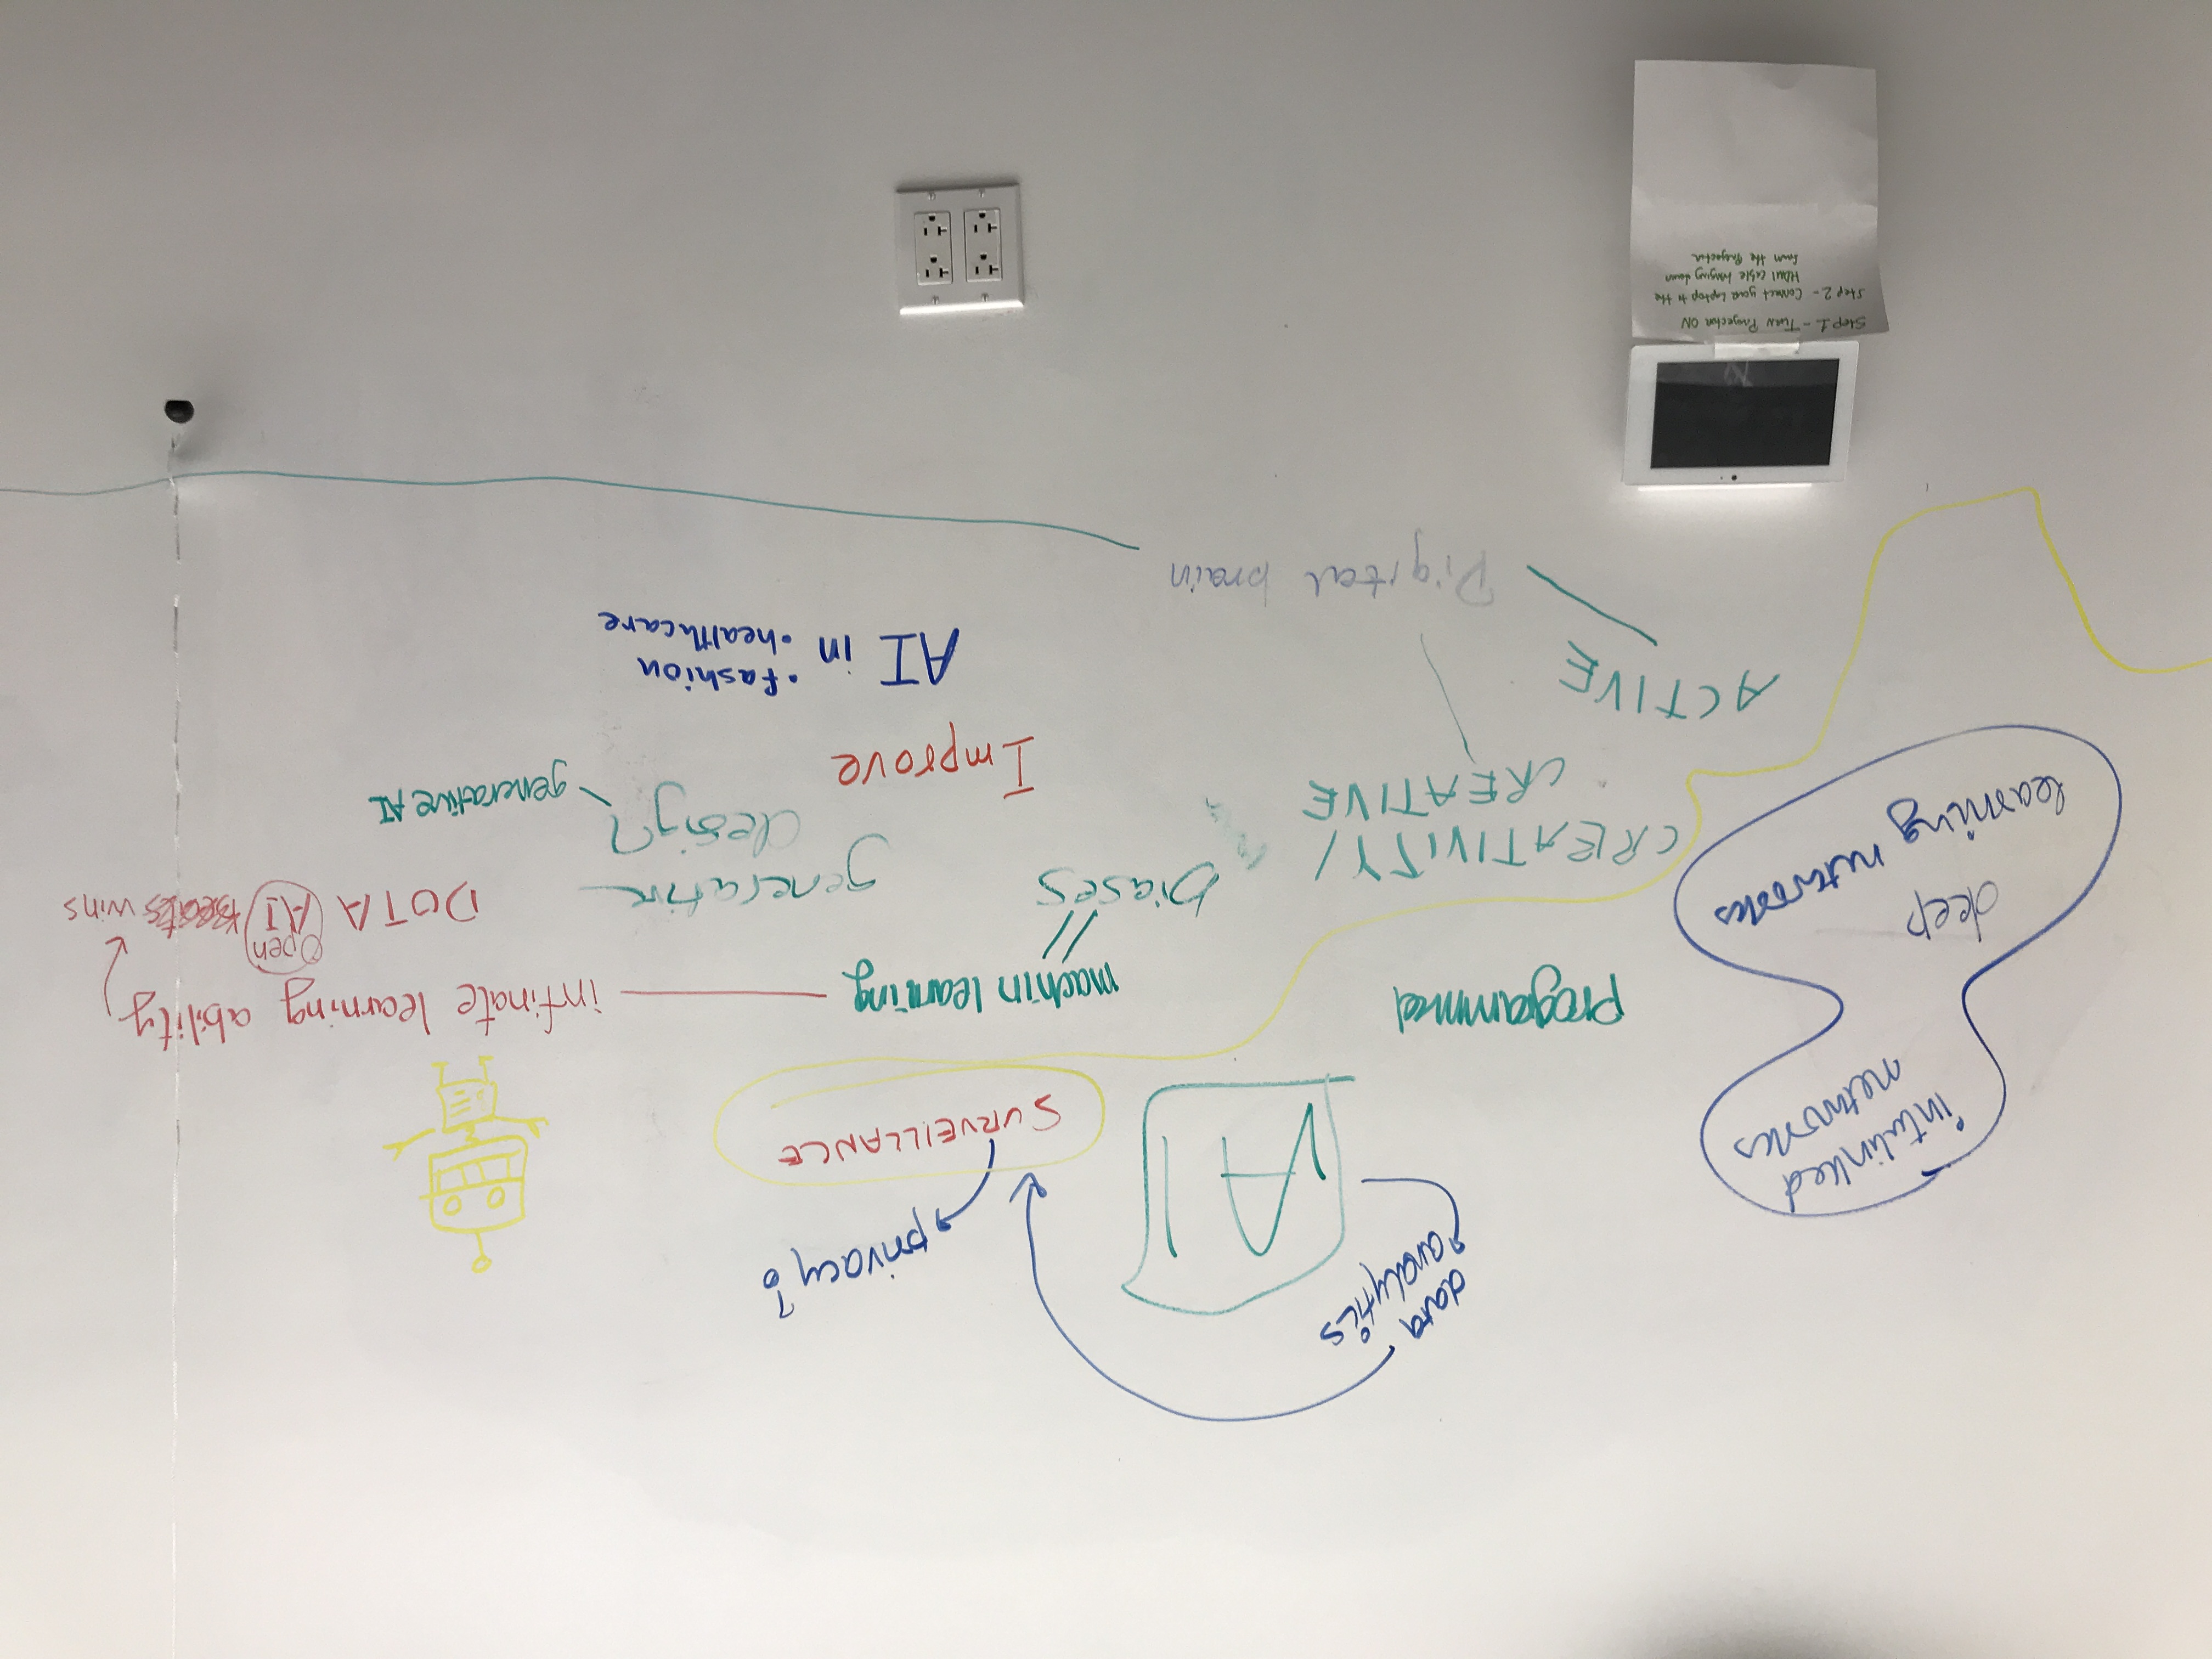 data
analytics
AI
privacy?
SURVEILLANCE
intulinked
networks
deep
learning networks
programmed
machin learning
infinate learning ability
biases
Open
DOTA AI beats wins
generative
design?
generative AI
CREATIVITY/
CREATIVE
Improve
ACTIVE
AI in • fashion
• healthcare
Digital brain
Step 1 - Turn Projector ON
Step 2 - Connect your Laptop to the
HDMI cable hanging down
from the Projector